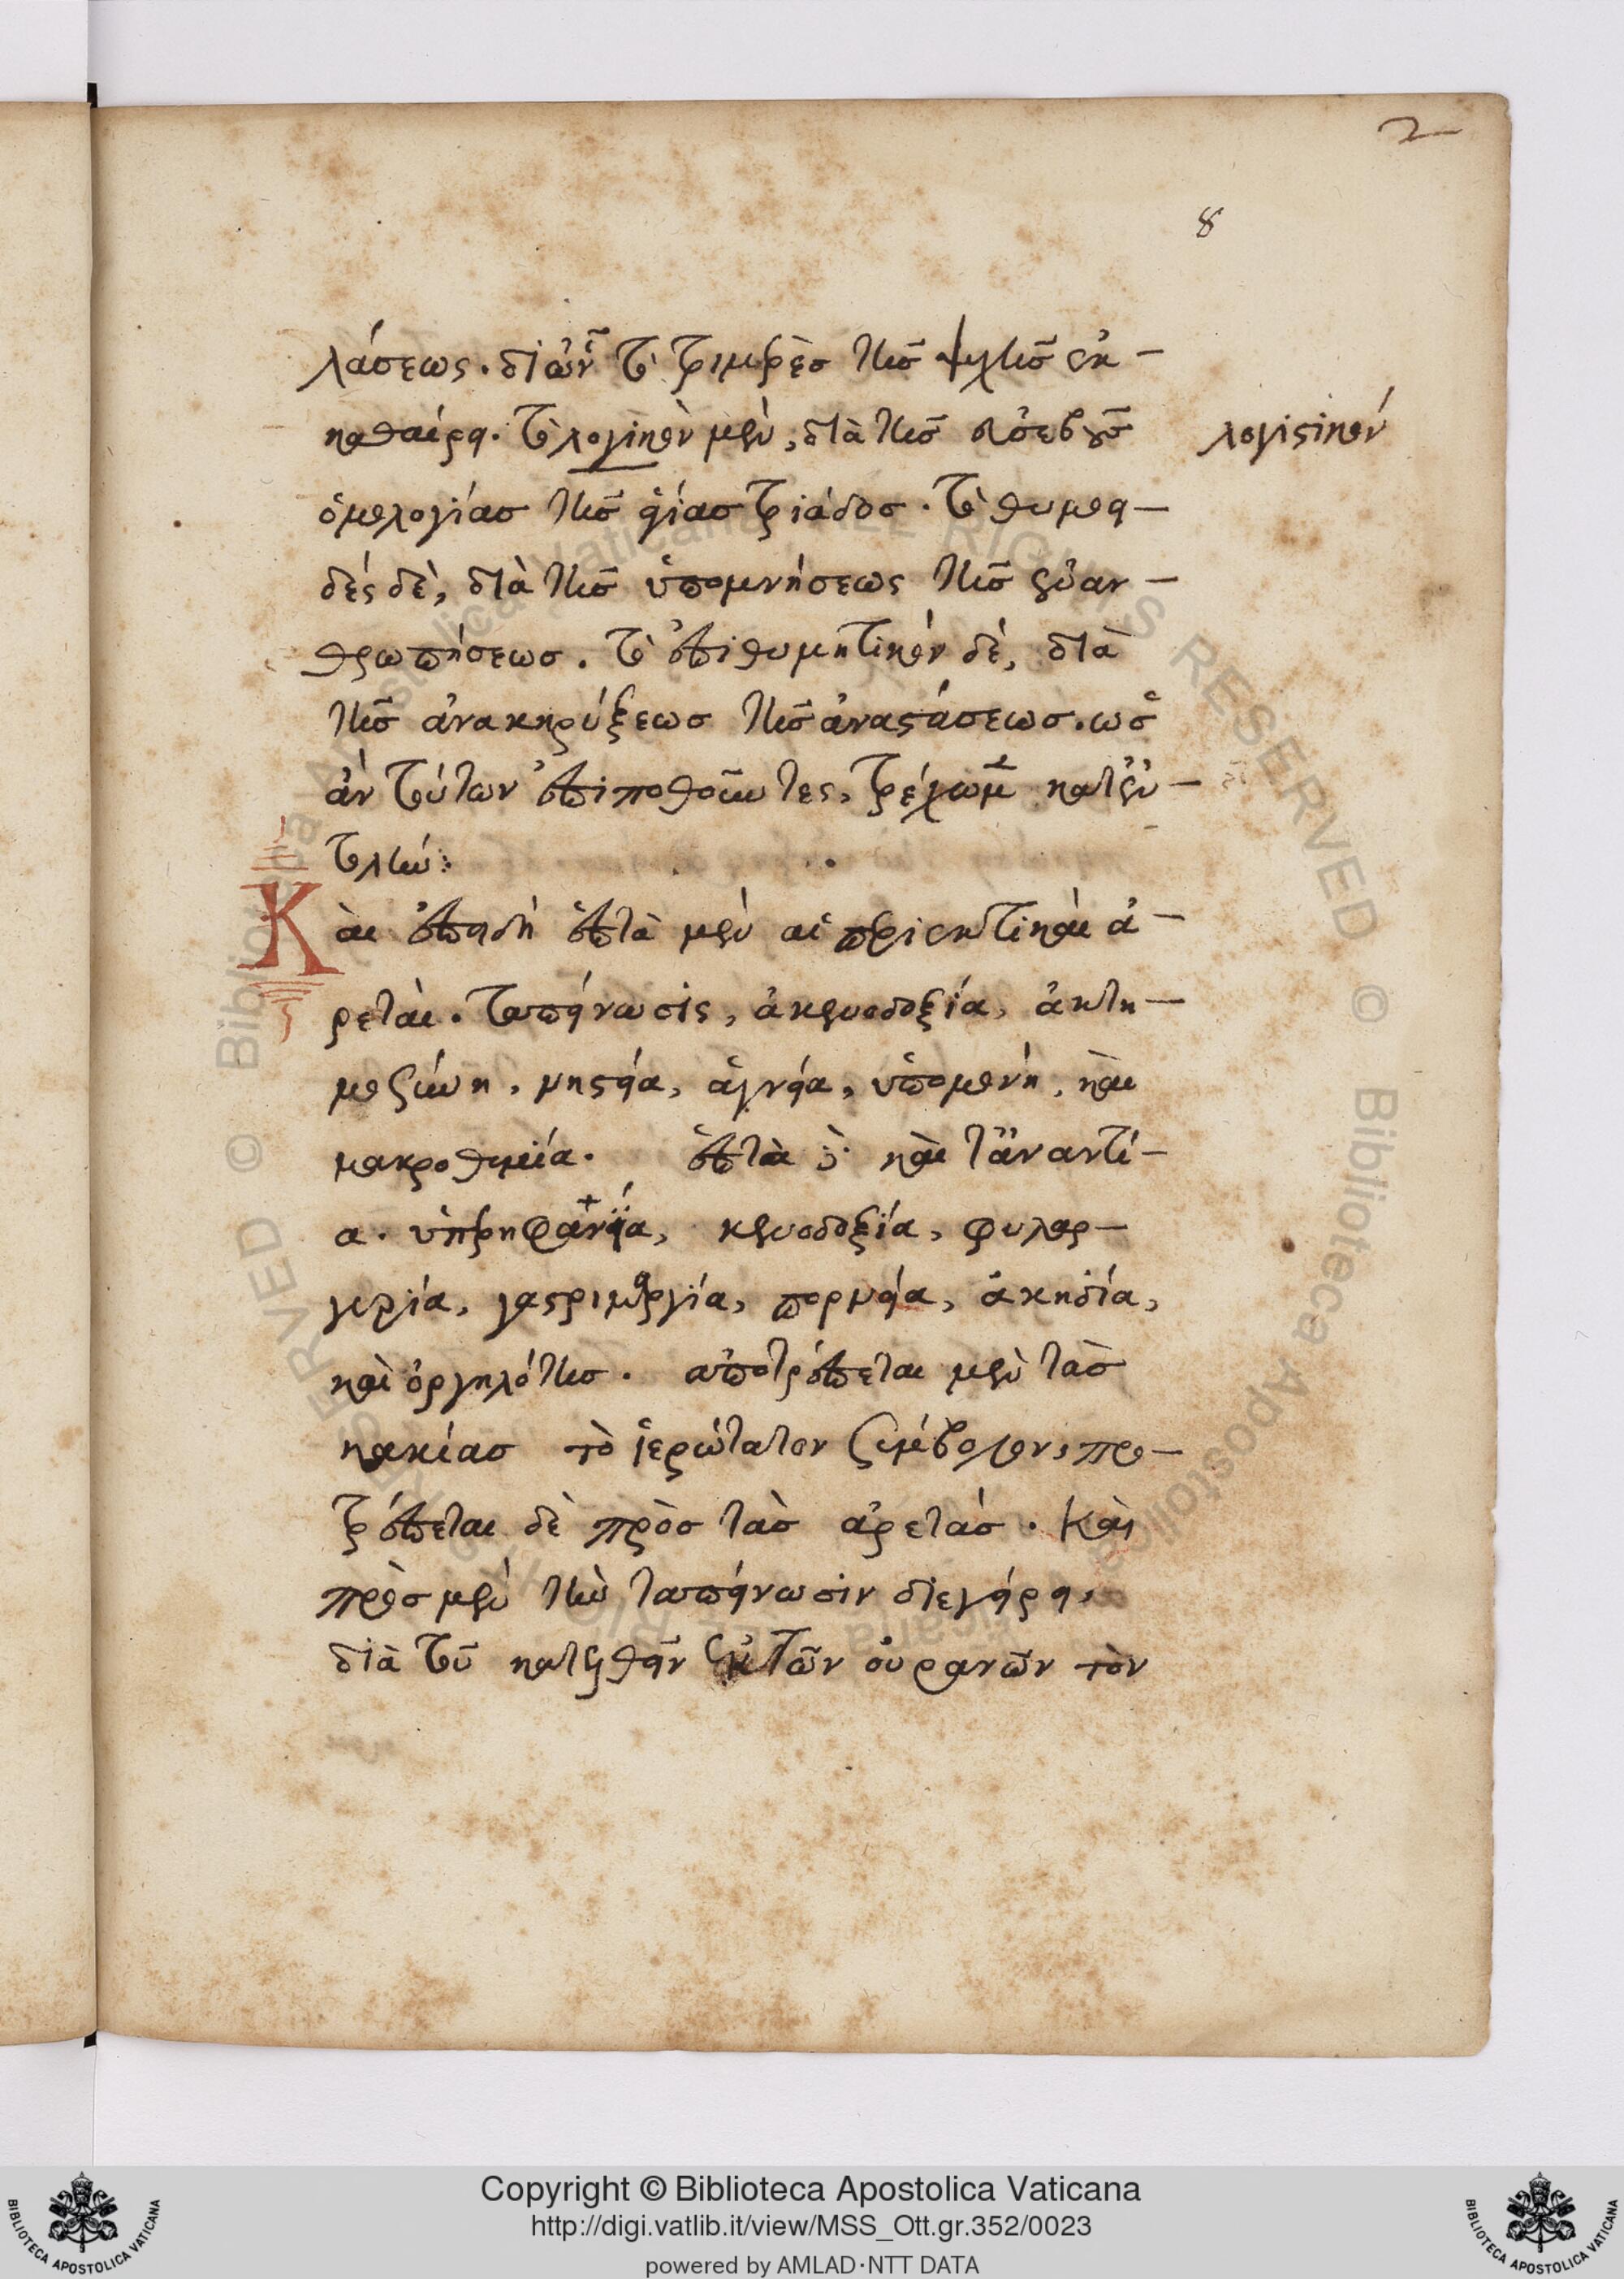 2
8
λάσεως. δι' ὧν τὸ τριμερὲς τῆς ψυχῆς ἐκ-
καθαίρει. τὸ λογικὸν μὲν, διὰ τῆς εὐσεβοῦς λογιστικόν
ὁμολογίας τῆς ἁγίας τριάδος. τὸ θυμοει-
δές δὲ, διὰ τῆς ὑπομνήσεως τῆς ἐναν-
θρωπήσεως. τὸ ἐπιθυμητικόν δέ, διὰ
τῆς ἀνακηρύξεως τῆς ἀναστάσεως. ὡς
ἂν τούτων ἐπιποθοῦντες, τρέχωμεν κατ' ἐν-
τολήν:
Καὶ ἐπειδὴ ἑπτὰ μὲν αἱ περιεκτικαὶ ἀ-
ρεταὶ. ταπείνωσις, ἀκενοδοξία, ἀκτη-
μοσύνη, νηστεία, ἁγνεία, ὑπομονή, καὶ
μακροθυμία. ἑπτὰ δὲ καὶ τἀναντί-
α. ὑπερηφανεία, κενοδοξία, φυλαρ-
γυρία, γαστριμαργία, πορνεία, ἀκηδία,
καὶ ὀργηλότης. ἀποτρέπεται μὲν τὰς
κακίας τὸ ἱερώτατον σύμβολον, προ-
τρέπεται δὲ πρὸς τὰς ἀρετάς. Καὶ
πρὸς μὲν τὴν ταπείνωσιν διεγείρει,
διὰ τοῦ κατελθεῖν ἐκ τῶν οὐρανῶν τὸν
Copyright © Biblioteca Apostolica Vaticana
http://digi.vatlib.it/view/MSS_Ott.gr.352/0023
powered by AMLAD·NTT DATA
BIBLIOTECA APOSTOLICA VATICANA
BIBLIOTECA APOSTOLICA VATICANA